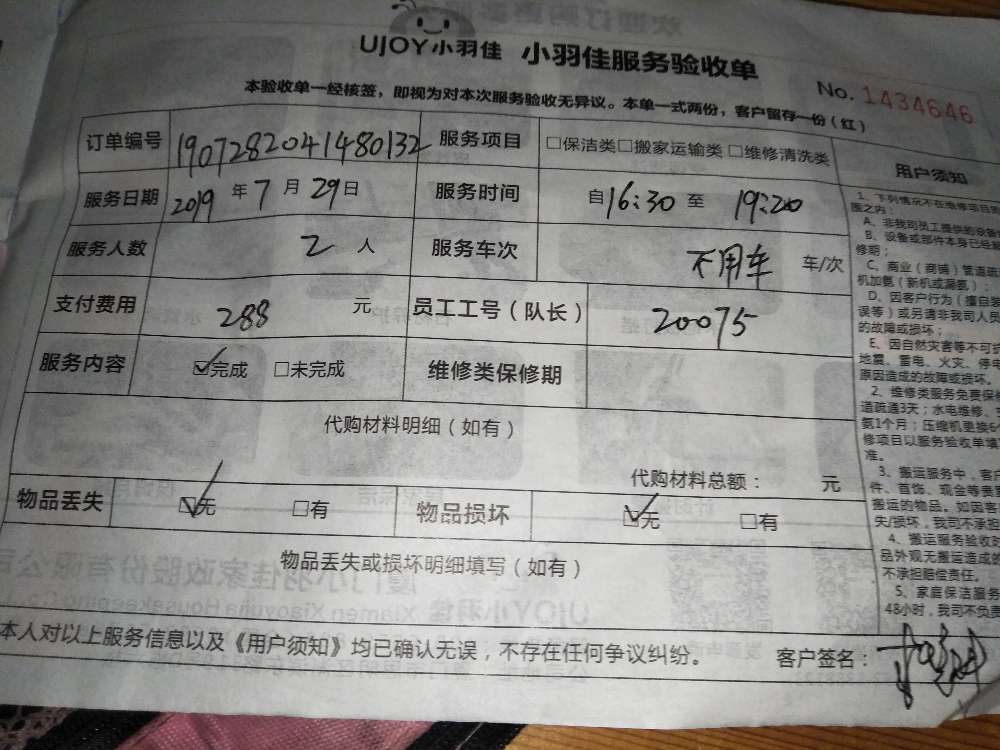 UJOY小羽佳 小羽佳服务验收单
No. 1434646
本验收单一经核签，即视为对本次服务验收无异议。本单一式两份，客户留存一份（红）
订单编号 1907282041480132 服务项目 □保洁类□搬家运输类 □维修清洗类
服务日期 2019 年 7 月 29 日 服务时间 自16:30 至 19:20
服务人数 2 人 服务车次 不用车 车/次
支付费用 288 元 员工工号（队长） 20075
服务内容 ☑完成 □未完成 维修类保修期
代购材料明细（如有）
代购材料总额： 元
物品丢失 ☑无 □有 物品损坏 ☑无 □有
物品丢失或损坏明细填写（如有）
本人对以上服务信息以及《用户须知》均已确认无误，不存在任何争议纠纷。 客户签名：
用户须知
1、下列情况不在维修项目
围之内：
A、非我司员工提供的设备
B、设备或部件本身已经
修期；
C、商业（商铺）管道疏
机加氨（新机或漏氨）；
D、因客户行为（擅自
误等）或另请非我司人员
的故障或损坏；
E、因自然灾害等不可
地震、雷电、火灾、停电
原因造成的故障或损坏。
2、维修类服务免费保
道疏通3天；水电维修、
氨1个月；压缩机更换6
修项目以服务验收单填
准。
3、搬运服务中，客户
件、首饰、现金等贵
搬运的物品。如因客
失/损坏，我司不承担
4、搬运服务验收
品外观无搬运造成的
不承担赔偿责任。
5、家庭保洁服务
48小时，我司不负责